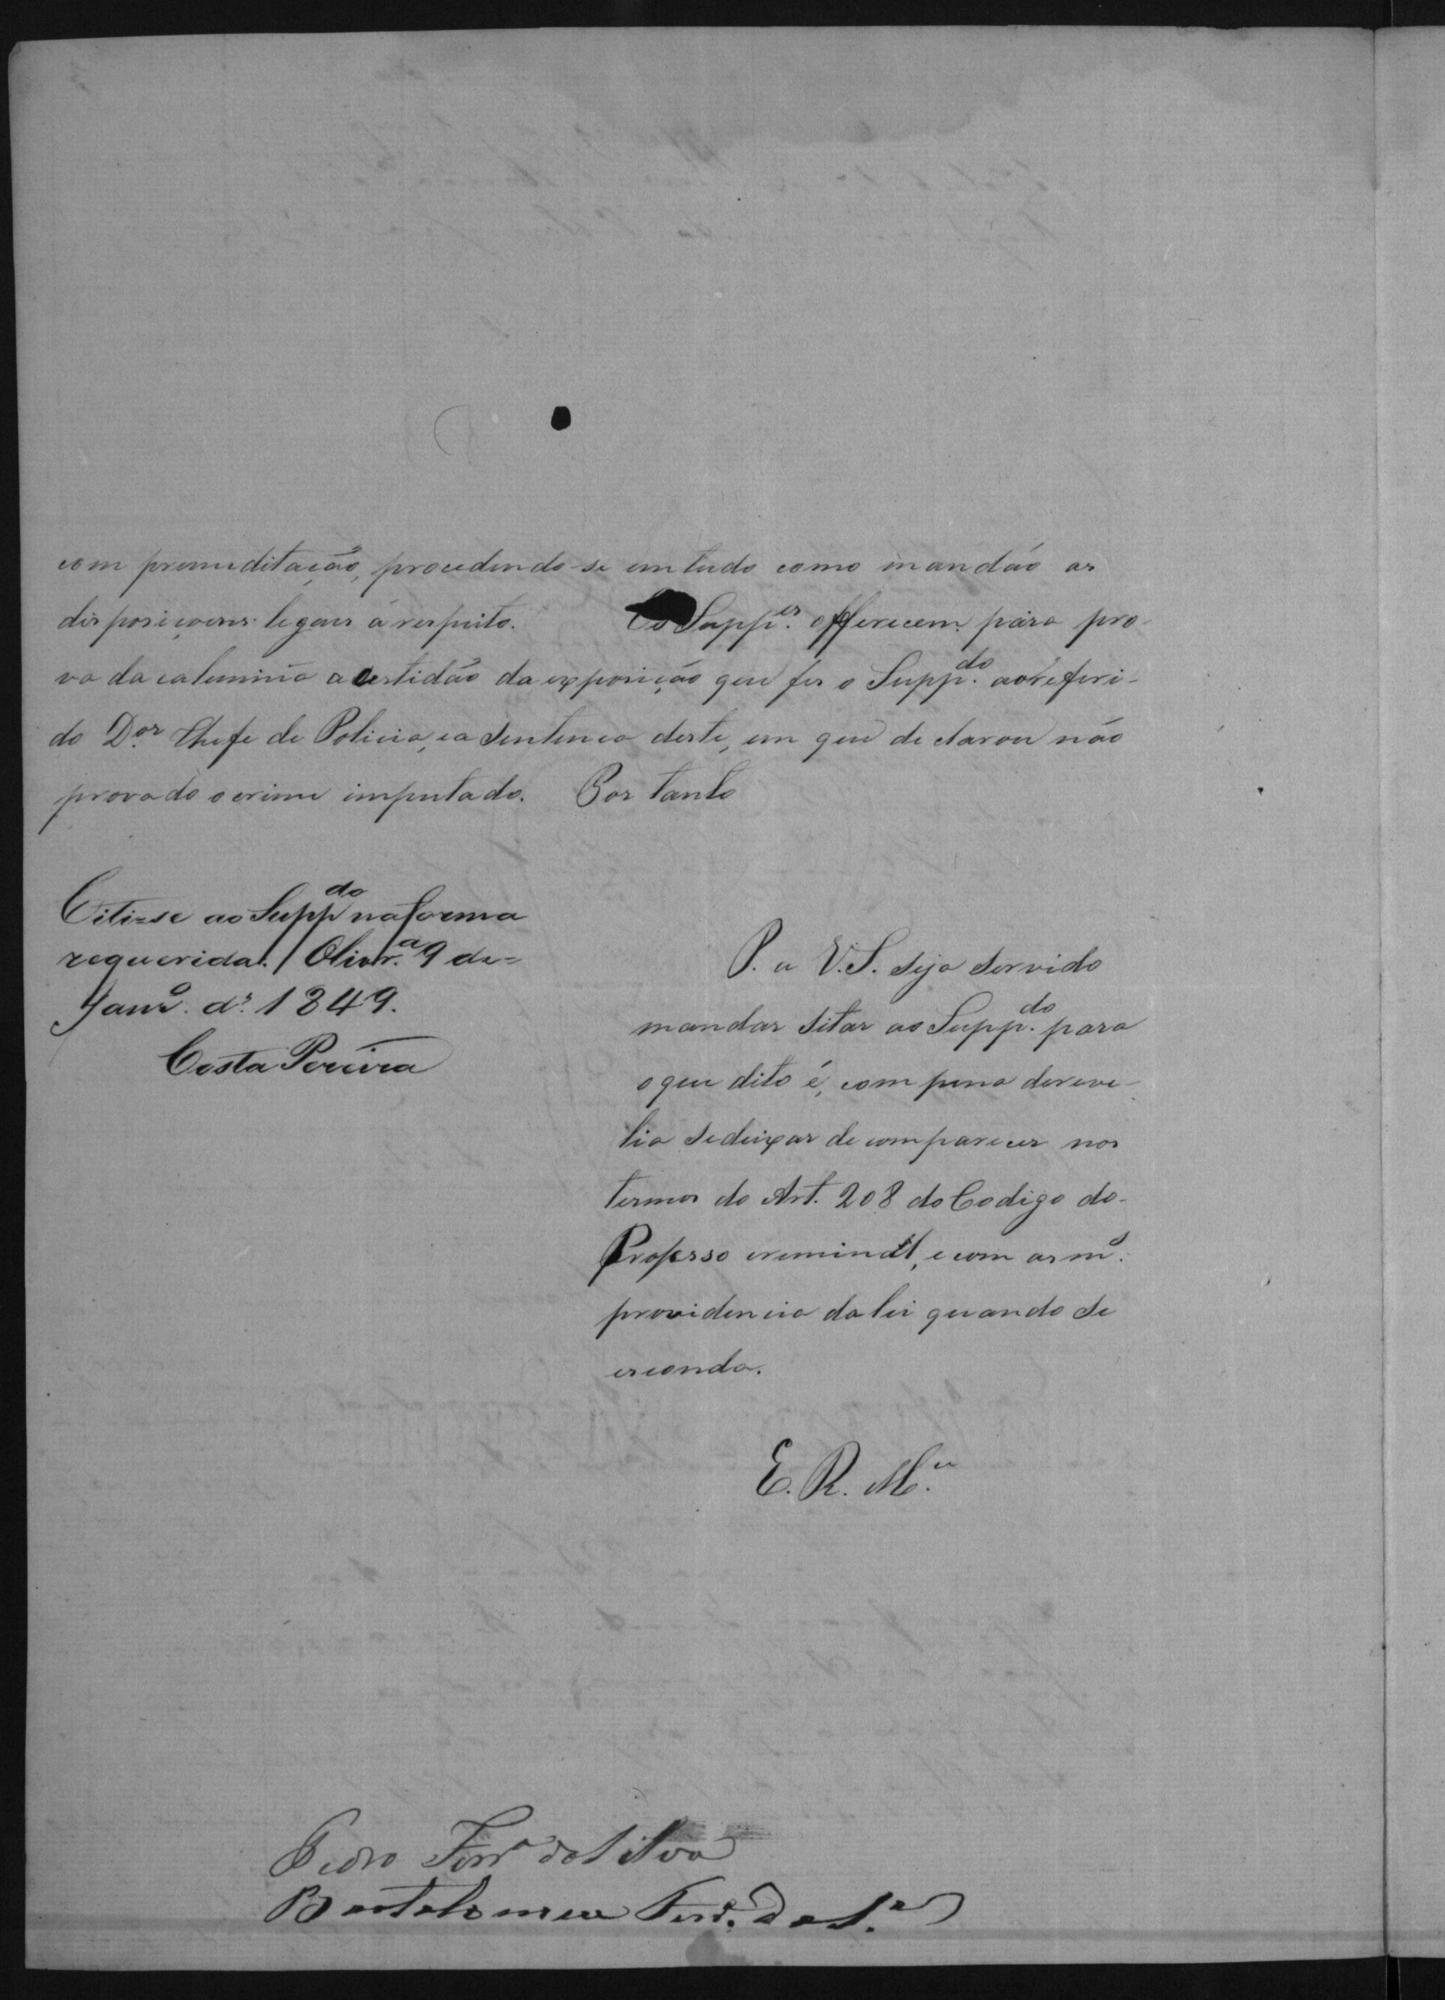 com premeditação, procedendo-se em tudo como mandão as
disposiçoens legais á respeito. Os Supp.es offerecem para pro-
va da calumnia a certidão da exposição que fes o Supp.do ao referi-
do D.or Chefe de Policia, e a Sentença deste, em que declarou não
provado o crime imputado. Por tanto
Cite-se ao Supp.do na forma
requerida. Olivr.a 9 de
Janr.o de 1849.
Costa Pereira
P. a V.S. seja servido
mandar sitar ao Supp.do para
o que dito é, com pena de reve-
lia se deixar de comparecer nos
termos do Art. 208 do Codigo do
Prosesso creminal, e com as m.
providencia da lei quando se
esconda.
E. R. M.ce
Pedro Ferr.a da Silva
Bartolomeu Ferr.a da S.a